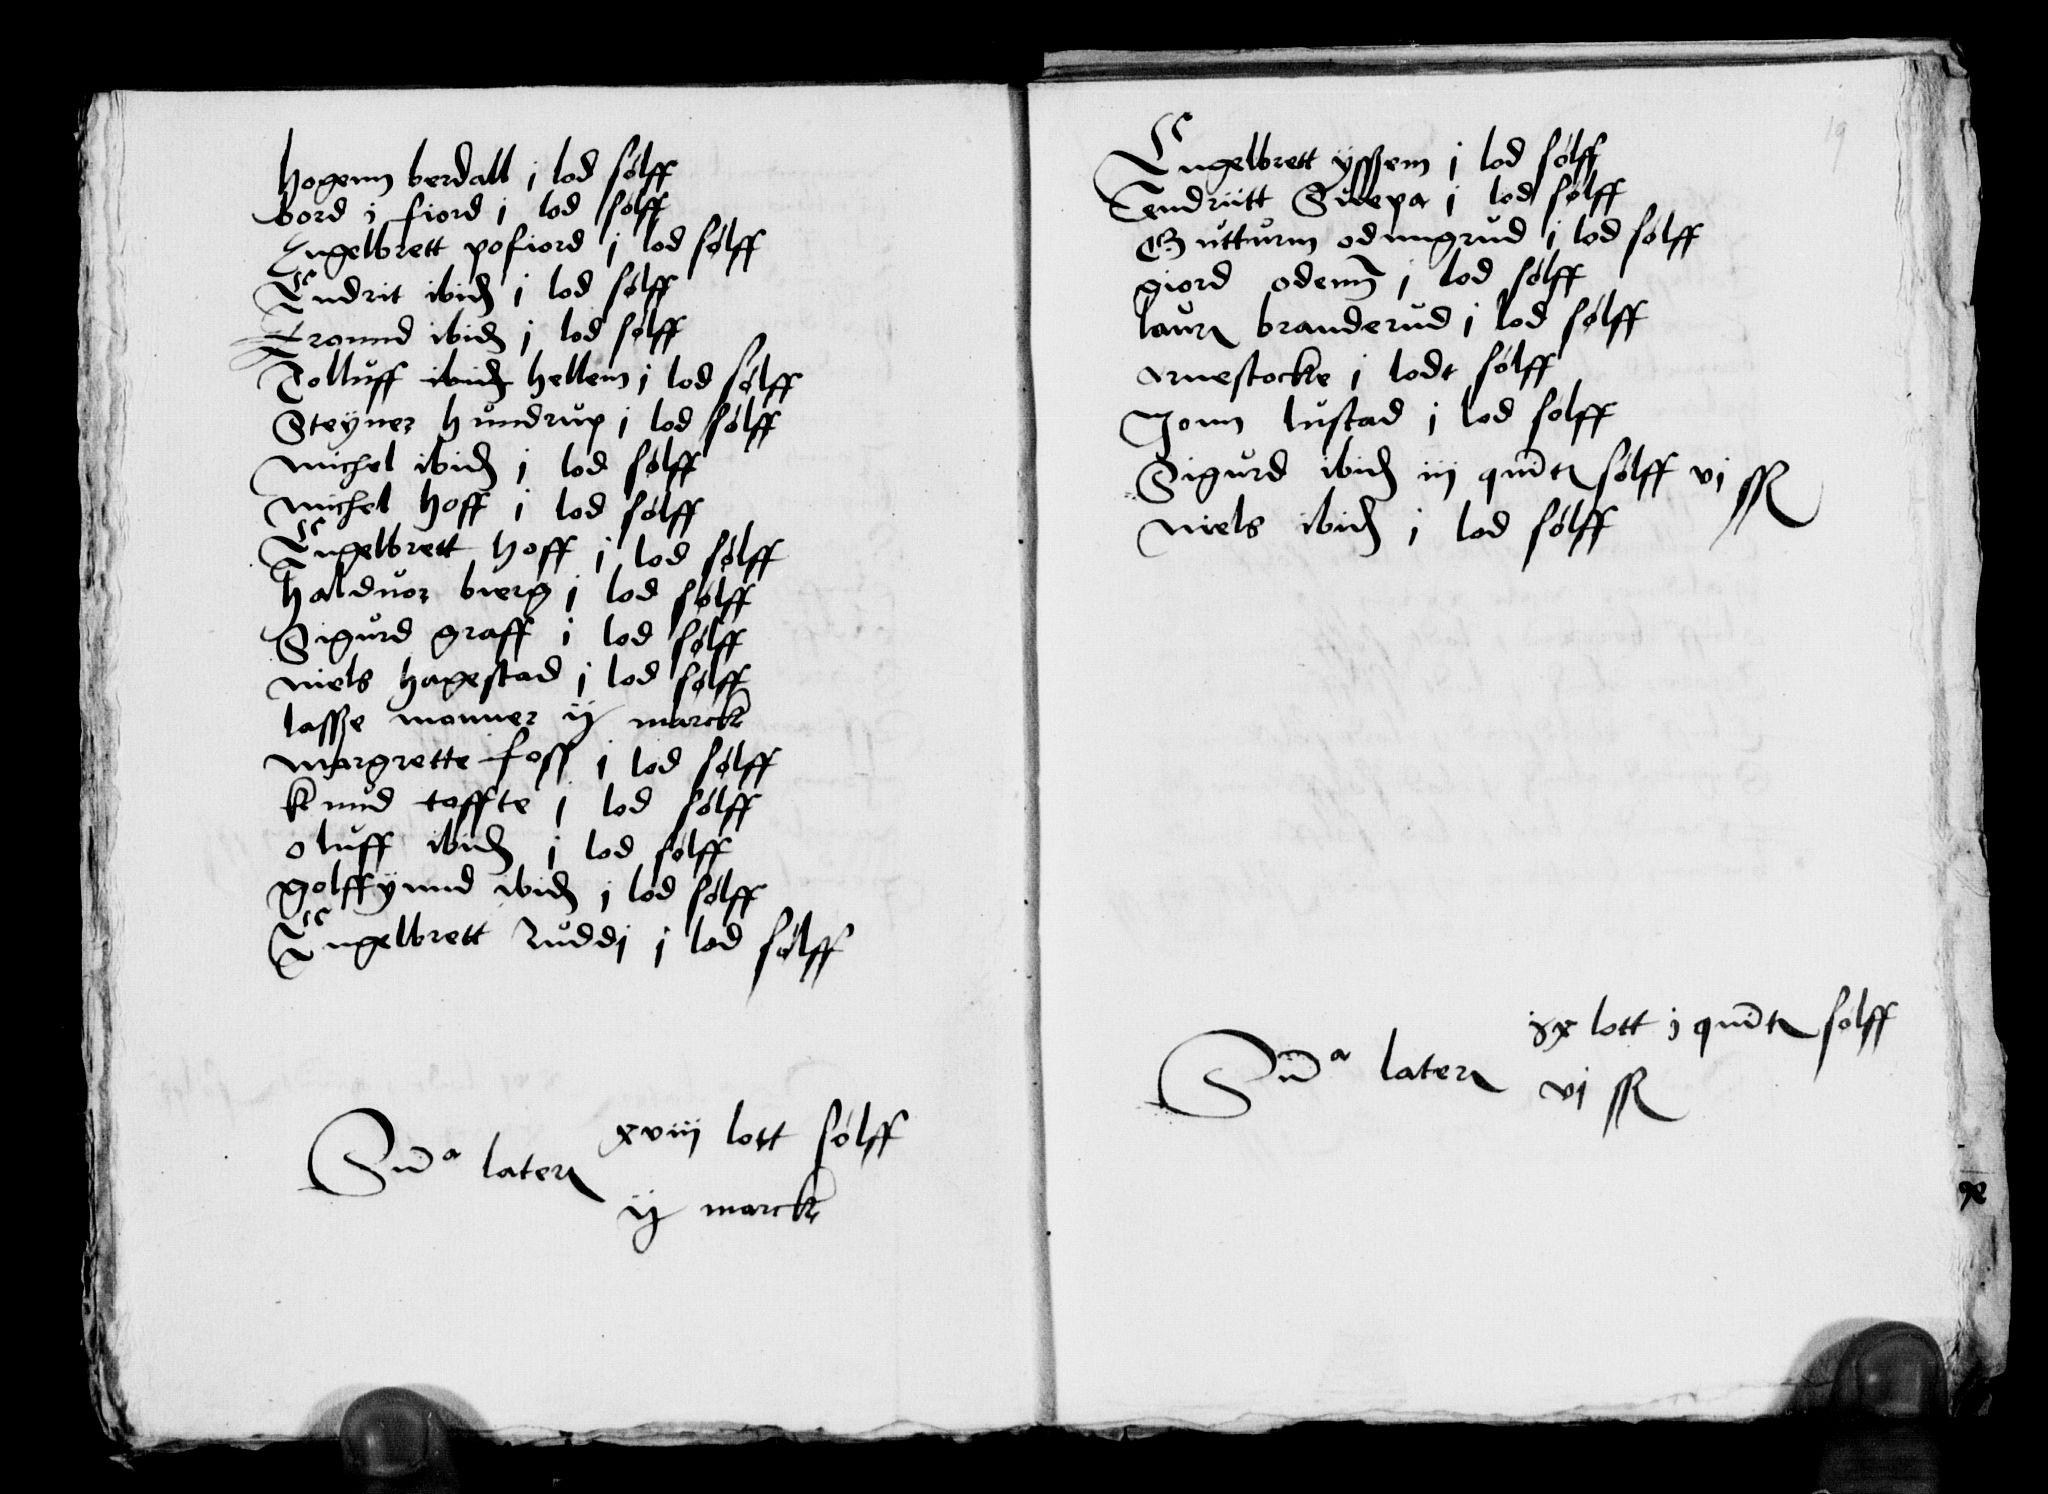 hogenn berdall j lod sølff
bord j fiord j lod sølff
Engelbrett pofiord j lod sølff
Endrit ibid j lod sølff
tronnd ibid j lod sølff
Tolluff ibid hellem j lod sølff
Steyner hundrup j lod sølff
michel ibid j lod sølff
michel hoff j lod sølff
Engelbrett hoff j lod sølff
halduor bierg j lod sølff
Sigurd graff j lod sølff
niels hagestad j lod sølff
lasse monner ij marck
margrette foss j lod sølff
knud toffte j lod sølff
oluff ibid j lod sølff
golffynnd ibid j lod sølff
Engelbrett Ruddj j lod sølff
Sum̄a laterꝭ xviij lott sølff
ij marck
19
Engelbrett yssem j lod sølff
Endriitt Suepa j lod sølff
Gutturm odnngrud j lod sølff
giord odenn j lod sølff
laurꝭ branderud j lod sølff
arnestocke j lodt sølff
Jonn lustad j lod sølff
Sigurd ibid iij quītꝭ sølff vj sk
niels ibid j lod sølff
Sum̄a laterꝭ ix lott j quītꝭ sølff
vj sk